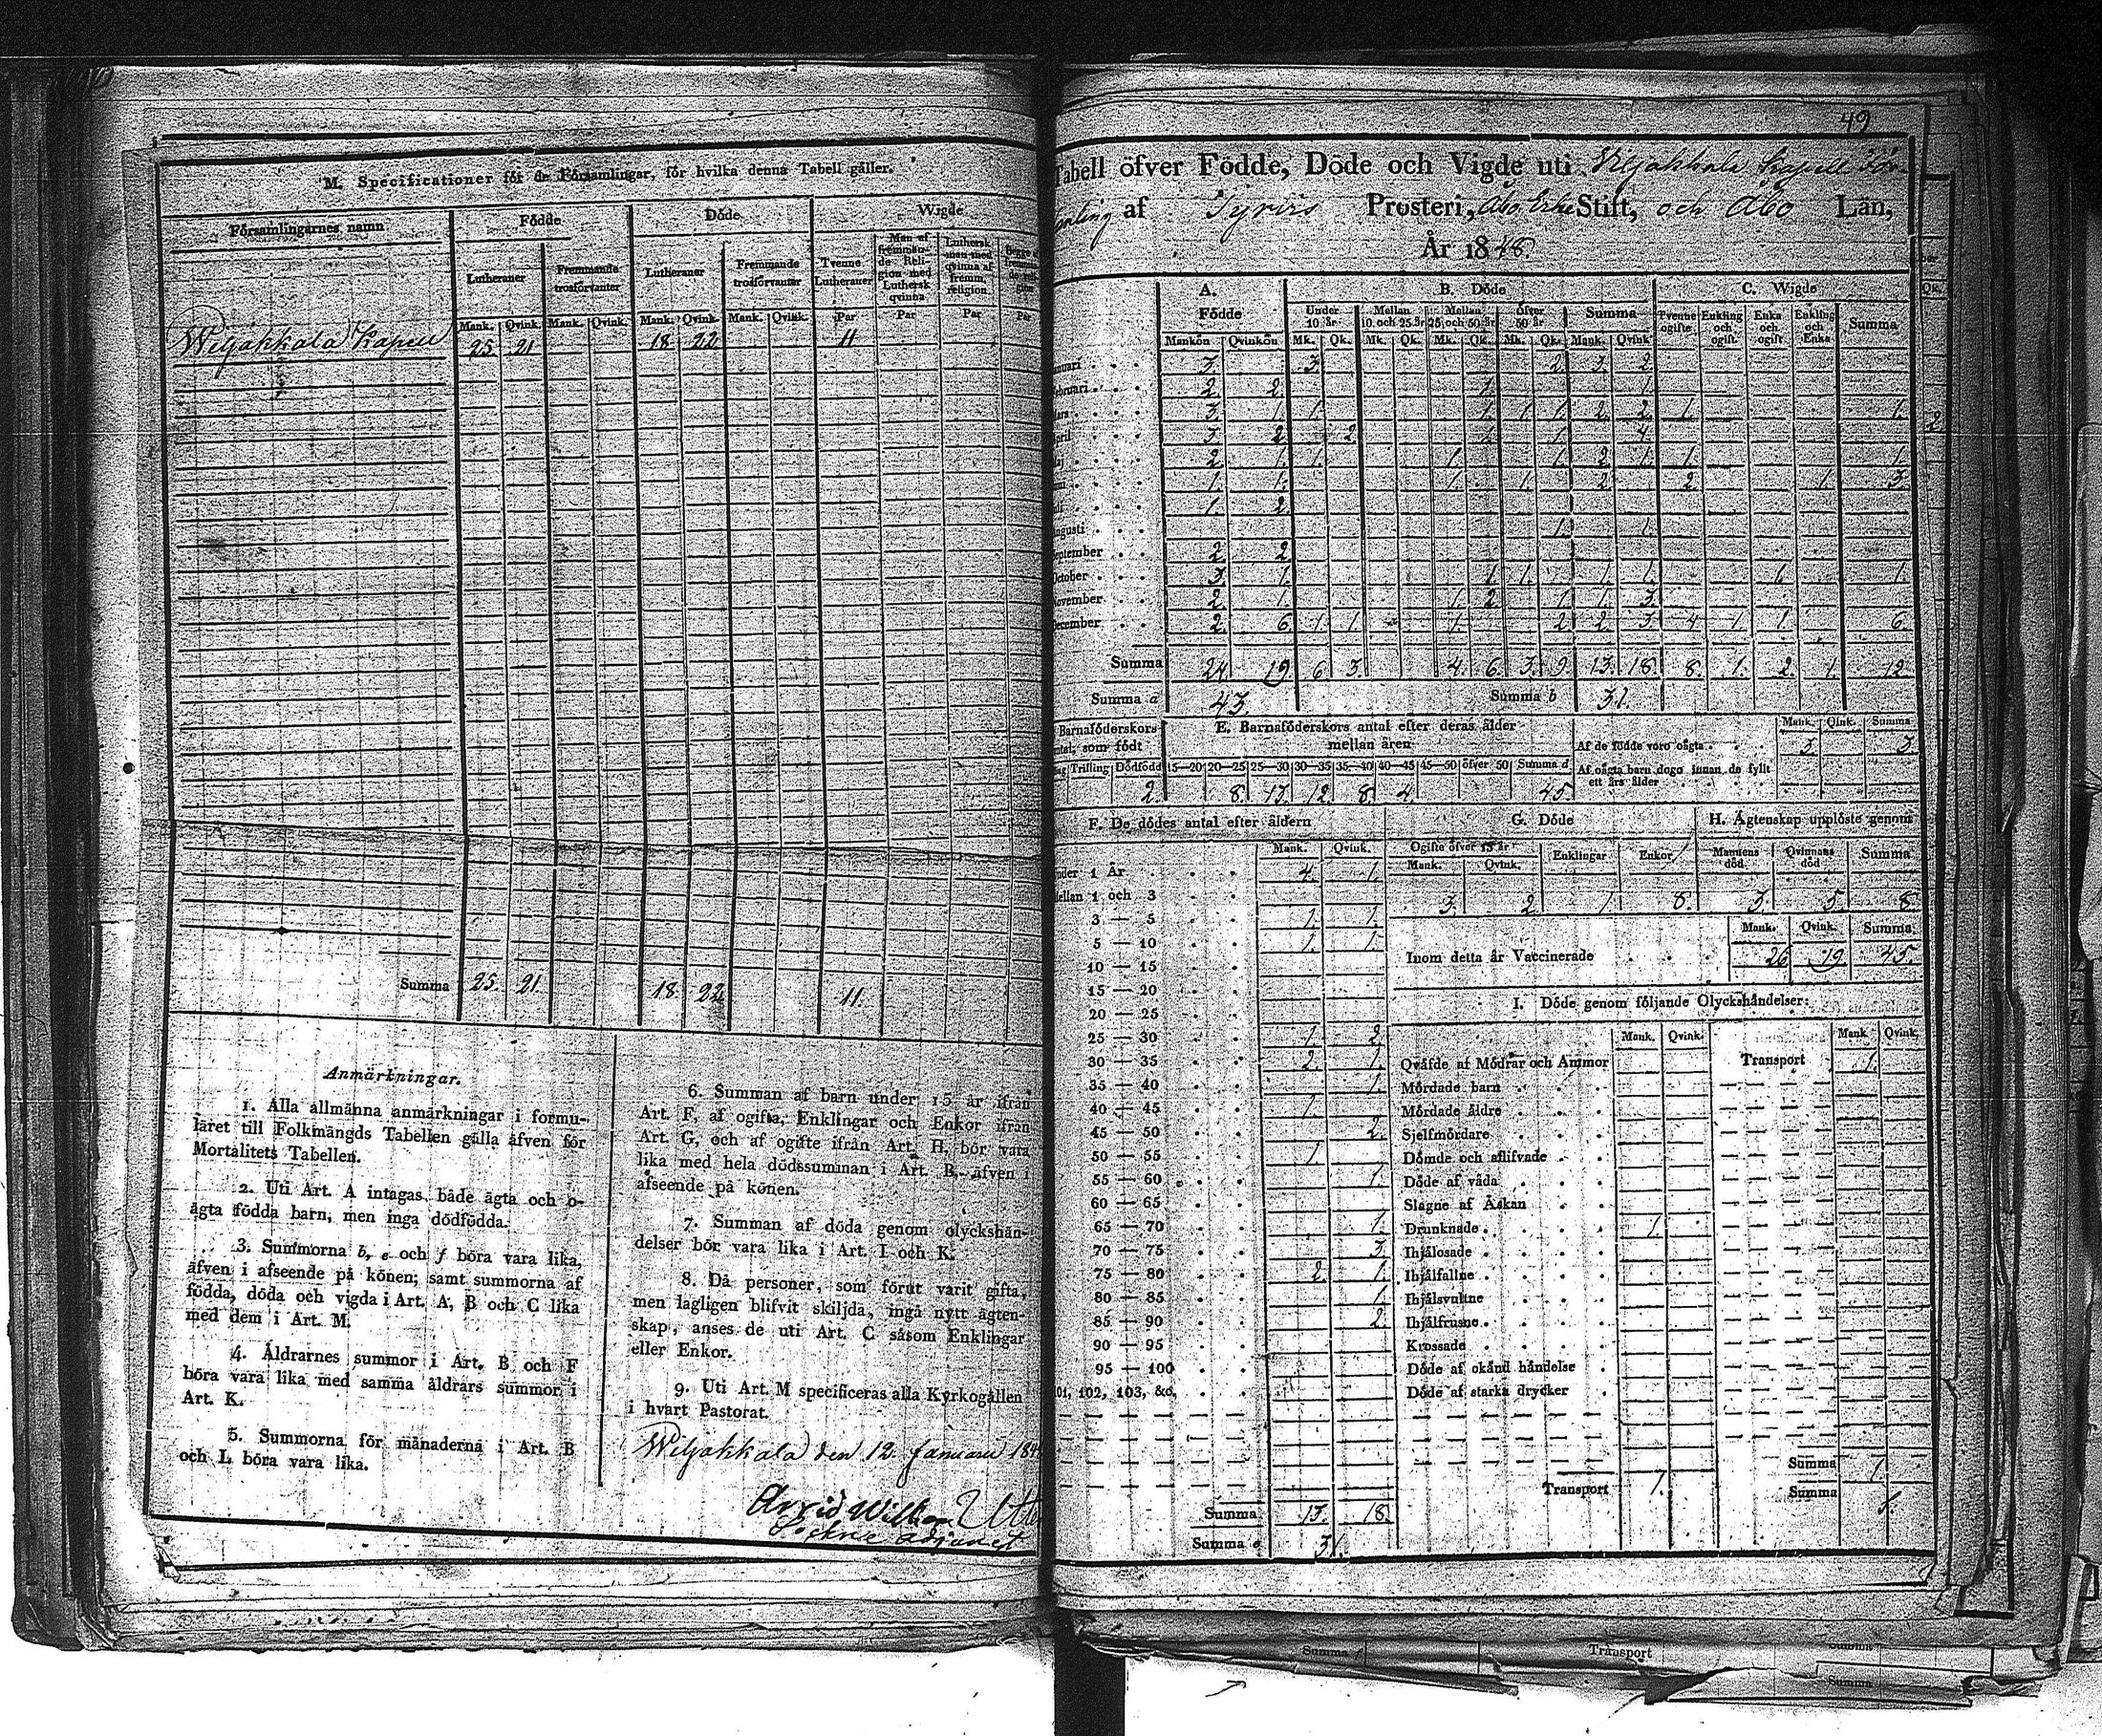 M. Specificationer för de Församlingar, för hvilka denna Tabell gäller.
Församlingarnes namn Födde Döde Wigde
Lutheraner Fremmande trosförvanter Lutheraner Fremmande trosförvanter Tvenne Lutheraner Man af fremmande Religion med Luthersk qvinna Luthersk man med qvinna af fremm. religion
Mank. Qvink. Mank. Qvink. Mank. Qvink. Mank. Qvink. Par Par Par Par
Wiljakkala Kapell 25. 21. 18. 22 11
Summa 25. 21. 18. 22 11.
Anmärkningar.
1. Alla allmänna anmärkningar i formu-
läret till Folkmängds Tabellen gälla äfven för
Mortalitets Tabellen.
2. Uti Art. A intagas både ägta och o-
ägta födda barn, men inga dödfödda.
3. Summorna b, e och f böra vara lika,
äfven i afseende på könen; samt summorna af
födda, döda och vigda i Art. A, B och C lika
med dem i Art. M.
4. Åldrarnes summor i Art. B och F
böra vara lika med samma åldrars summor i
Art. K.
5. Summorna för månaderna i Art. B
och L böra vara lika.
6. Summan af barn under 15 år ifrån
Art. F, af ogifta, Enklingar och Enkor ifrån
Art. G, och af ogifte ifrån Art. H, bör vara
lika med hela dödssumman i Art. B, äfven i
afseende på könen.
7. Summan af döda genom olyckshän-
delser bör vara lika i Art. I och K.
8. Då personer, som förut varit gifta,
men lagligen blifvit skiljda, ingå nytt ägten-
skap, anses de uti Art. C såsom Enklingar
eller Enkor.
9. Uti Art. M specificeras alla Kyrkogällen
i hvart Pastorat.
Wiljakkala den 12. Januarii 184
Arvid William
49
Tabell öfver Födde, Döde och Vigde uti Wiljakkala Kapell För-
samling af Tyrvis Prosteri, Åbo Erke Stift, och Åbo Län,
År 1848.
A. B. Döde C. Wigde
Födde Under 10 år Mellan 10 och 25 år Mellan 25 och 50 år Öfver 50 år Summa Tvenne ogifte Enkling och ogift. Enka och ogift Enkling och Enka Summa
Mankön Qvinkön Mk. Qk. Mk. Qk. Mk. Qk. Mk. Qk. Mank. Qvink
anuari 3. 3. 2 3. 2.
ebruari 2. 2. 1. 1.
ars 3. 1. 1. 1. 1 1. 2. 2. 1. 1.
pril 3. 2 2. 1. 1. 4.
aj 2. 1. 1. 1. 1. 2. 1. 1. 1.
1. 1. 1. 1. 2. 2. 1. 3.
1. 2.
ugusti 1. 1.
eptember 2. 2
October 3. 1. 1. 1. 1. 1. 1. 1.
ovember 2. 1. 1. 2. 1. 1. 3.
ecember 2. 6. 1. 1. 1. 2 2. 3. 4. 1. 1. 6.
Summa 24. 19. 6 3. 4. 6. 3. 9. 13. 18. 8. 1. 2. 1. 12.
Summa a 43. Summa b 31.
Barnaföderskors antal, som födt
Trilling Dödfödd
2.
E. Barnaföderskors antal efter deras ålder
mellan åren
15—20 20—25 25—30 30—35 35—40 40—45 45—50 öfver 50 Summa d
8. 13. 12. 8. 4. 45.
Mank. Qink. Summa
Af de födde voro oägta 3. 3.
Af oägta barn dogo innan de fyllt
ett års ålder
F. De dödes antal efter åldern
Mank. Qvink.
nder 1 År 4. 1.
ellan 1 och 3
3 — 5 1. 1.
5 — 10 1. 1.
10 — 15
15 — 20
20 — 25
25 — 30 1. 2.
30 — 35 2. 1.
35 — 40 1.
40 — 45 1.
45 — 50 2.
50 — 55 1.
55 — 60 1.
60 — 65
65 — 70 1.
70 — 75 3.
75 — 80 2. 1.
80 — 85 1.
85 — 90 2.
90 — 95
95 — 100
101, 102, 103, &c,
Summa 13. 18.
Summa e 31.
G. Döde
Ogifte öfver 15 år Enklingar Enkor
Mank. Qvink.
3. 2. 1. 8.
H. Ägtenskap upplöste genom
Mannens död. Qvinnans död Summa
3. 5. 8.
Mank. Qvink. Summa
Inom detta år Vaccinerade 26 19. 45.
I. Döde genom följande Olyckshändelser:
Mank. Qvink. Mank Qvink.
Qväfde af Mödrar och Ammor Transport 1.
Mördade barn
Mördade äldre
Sjelfmördare
Dömde och aflifvade
Döde af våda
Slagne af Åskan
Drunknade 1.
Ihjälosade
Ihjälfallne
Ihjälsvultne
Ihjälfrusne
Krossade
Döde af okänd händelse
Döde af starka drycker
Summa 1.
Transport 1. Summa 1.
Summa f Transport
Summa